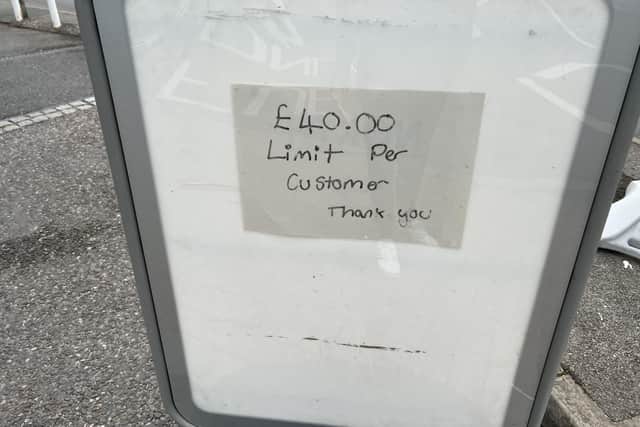 £40.00
Limit Per
Customer
Thank you